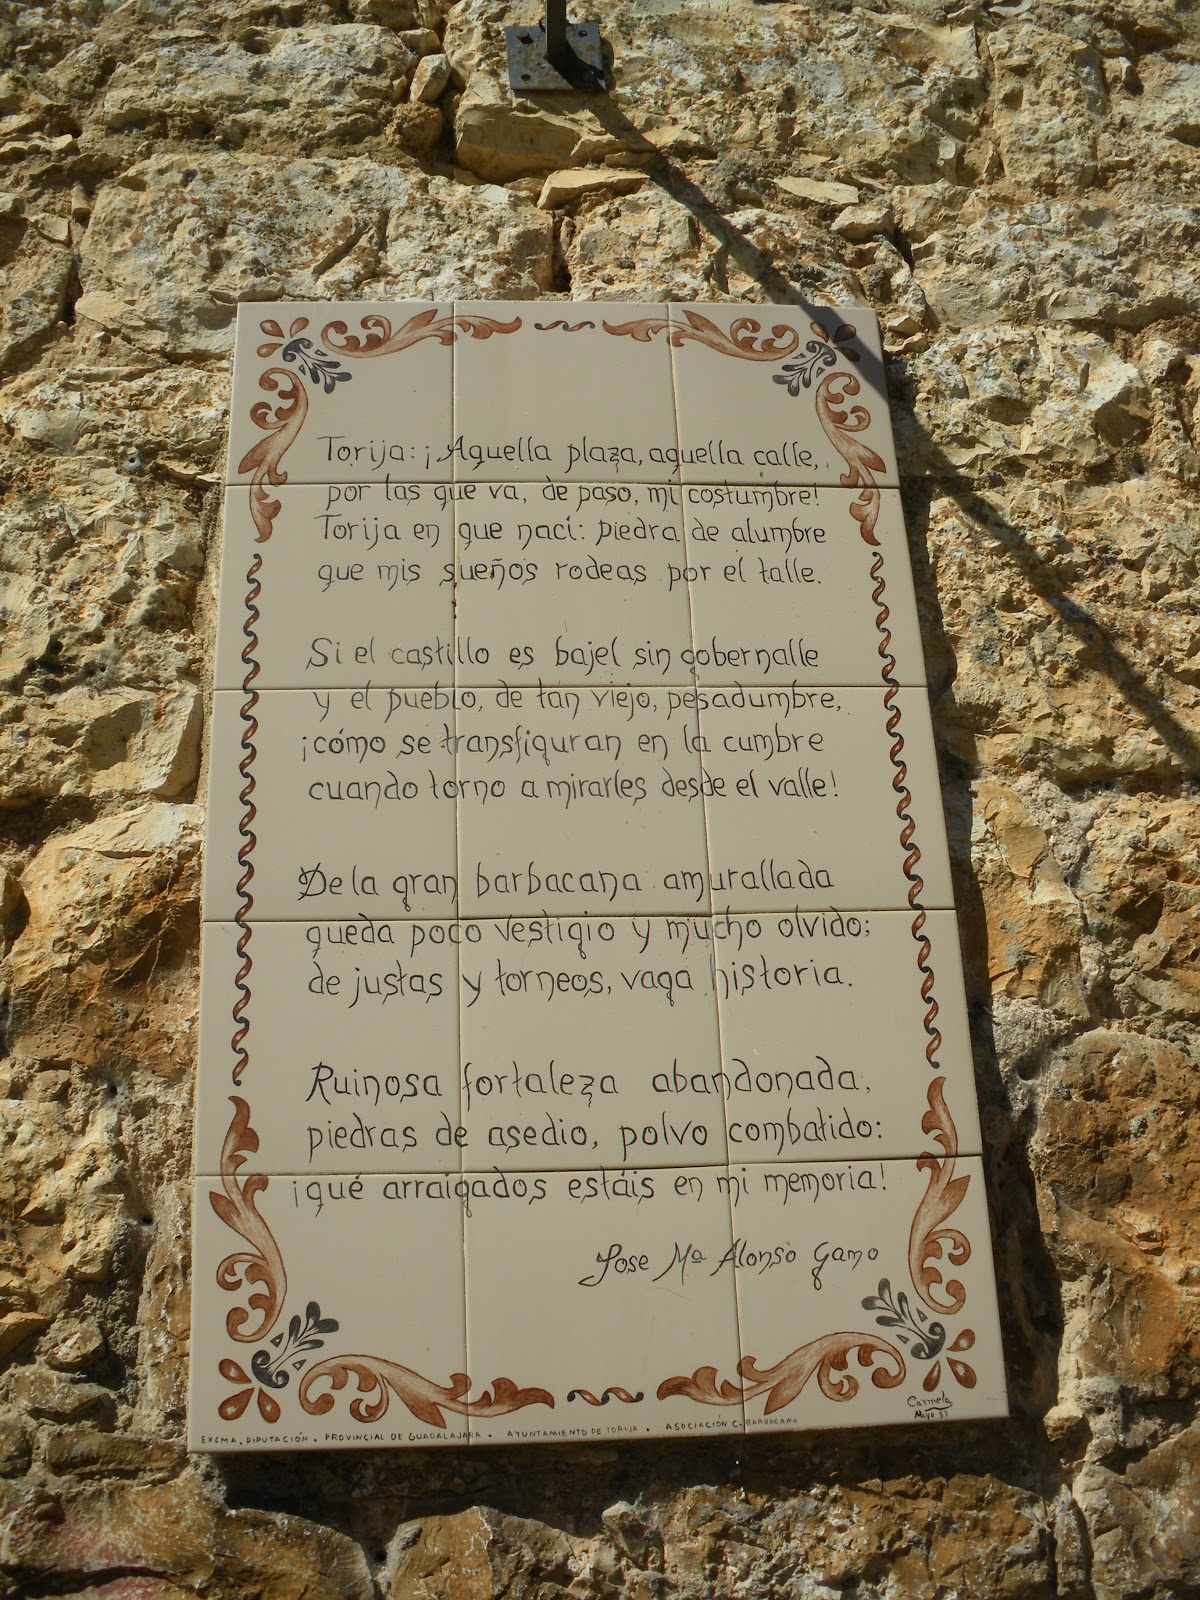 Torija: ¡Aquella plaza, aquella calle,
por las que va, de paso, mi costumbre!
Torija en que nací: piedra de alumbre
que mis sueños rodeas por el talle.
Si el castillo es bajel sin gobernalle
y el pueblo, de tan viejo, pesadumbre,
¡cómo se transfiguran en la cumbre
cuando torno a mirarles desde el valle!
De la gran barbacana amurallada
queda poco vestigio y mucho olvido;
de justas y torneos, vaga historia.
Ruinosa fortaleza abandonada,
piedras de asedio, polvo combatido:
¡qué arraigados estáis en mi memoria!
Jose Mª Alonso Gamo
Carmela
Mayo 93
EXCMA. DIPUTACIÓN. PROVINCIAL DE GUADALAJARA. AYUNTAMIENTO DE TORIJA. ASOCIACIÓN C. BARBACANA